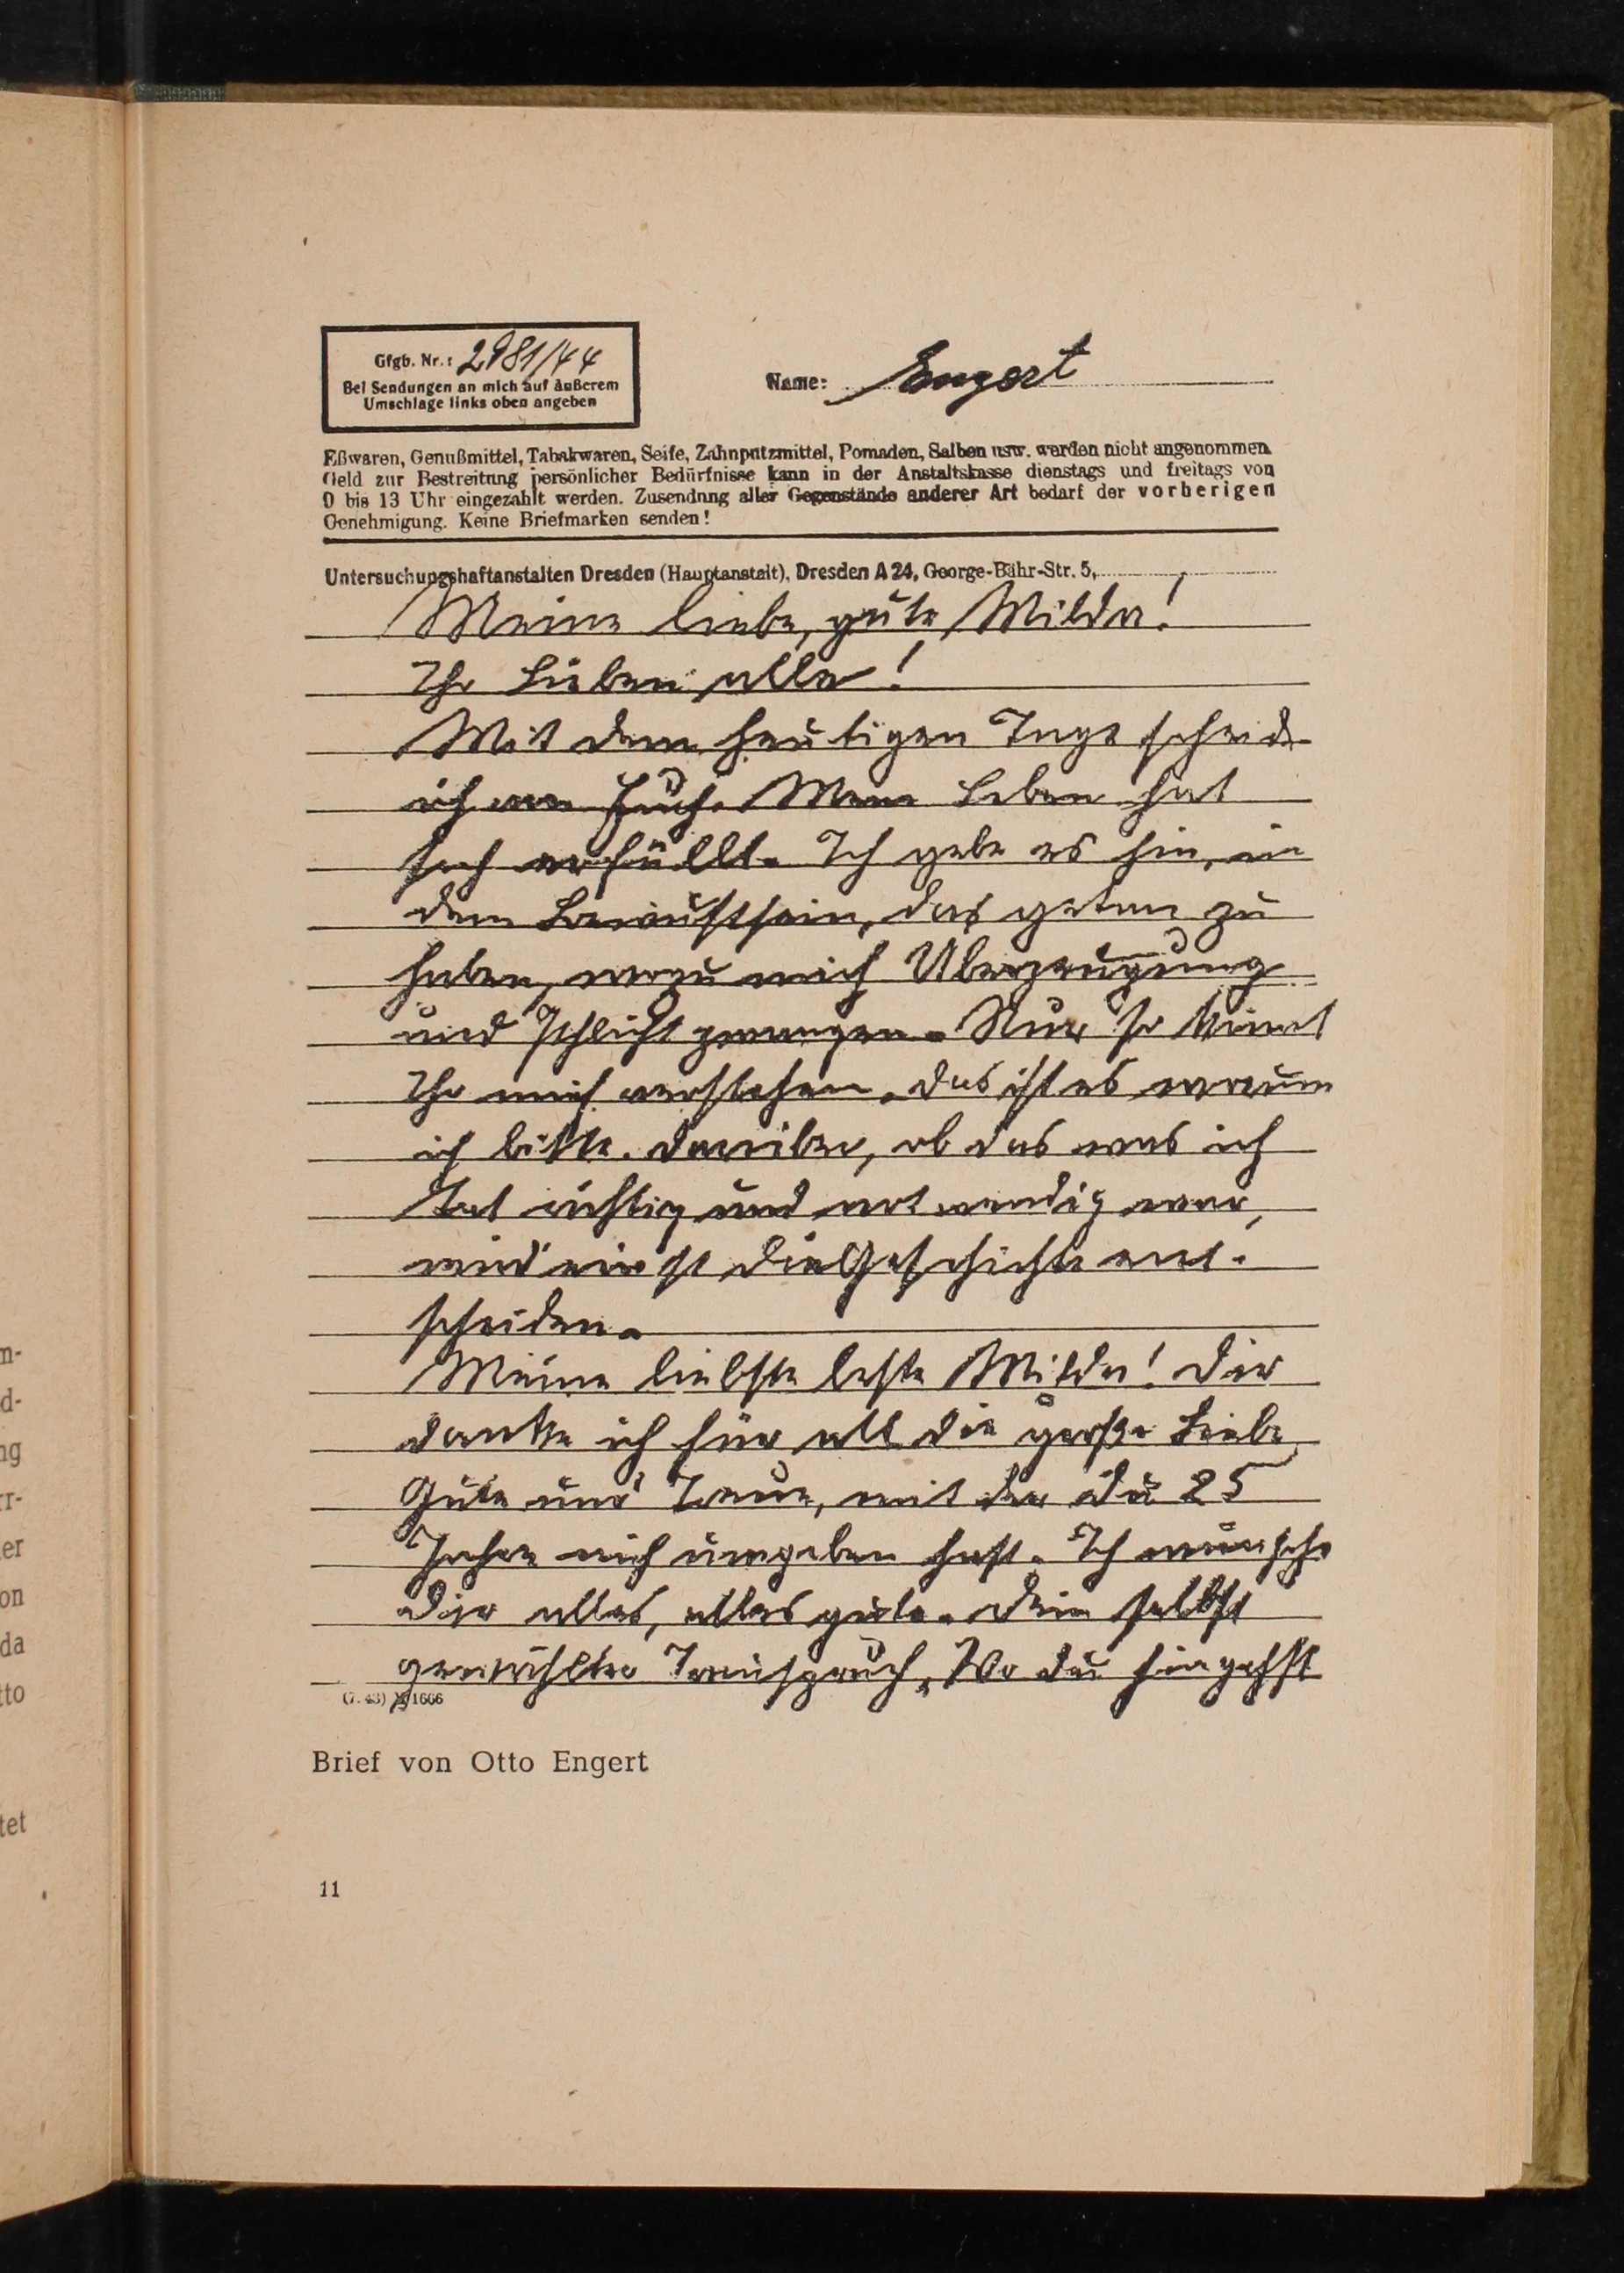 Gfgb. Nr.: 2981/44
Bei Sendungen an mich auf äußerem
Umschlage links oben angeben
Name: Engert
Eßwaren, Genußmittel, Tabakwaren, Seife, Zahnputzmittel, Pomaden, Salben usw. werden nicht angenommen
Geld zur Bestreitung persönlicher Bedürfnisse kann in der Anstaltskasse dienstags und freitags von
9 bis 13 Uhr eingezahlt werden. Zusendung aller Gegenstände anderer Art bedarf der vorherigen
Genehmigung. Keine Briefmarken senden!
Untersuchungshaftanstalten Dresden (Hauptanstalt), Dresden A 24, George-Bähr-Str. 5,
Meine liebe, gute Milda!
Ihr Lieben alle!
Mit dem heutigen Tage scheide
ich von Euch. Mein Leben hat
sich erfüllt. Ich gebe es hin, in
dem Bewußtsein, das getan zu
haben, wozu mich Überzeugung
und Pflicht zwangen. Nur so könnt
Ihr mich verstehen, das ist es worum
ich bitte. Darüber, ob das was ich
tat richtig und notwendig war,
wird einst die Geschichte ent-
scheiden.
Meine liebste beste Milda! Dir
danke ich für all die große Liebe,
Güte und Treue, mit der Du 25
Jahre mich umgeben hast. Ich wünsche
Dir alles, alles gute. Dein selbst
gewählter Trauspruch, Wo du hin gehst
(7. 43) 1666
Brief von Otto Engert
11
n-
d-
ng
rr-
er
on
da
tto
tet